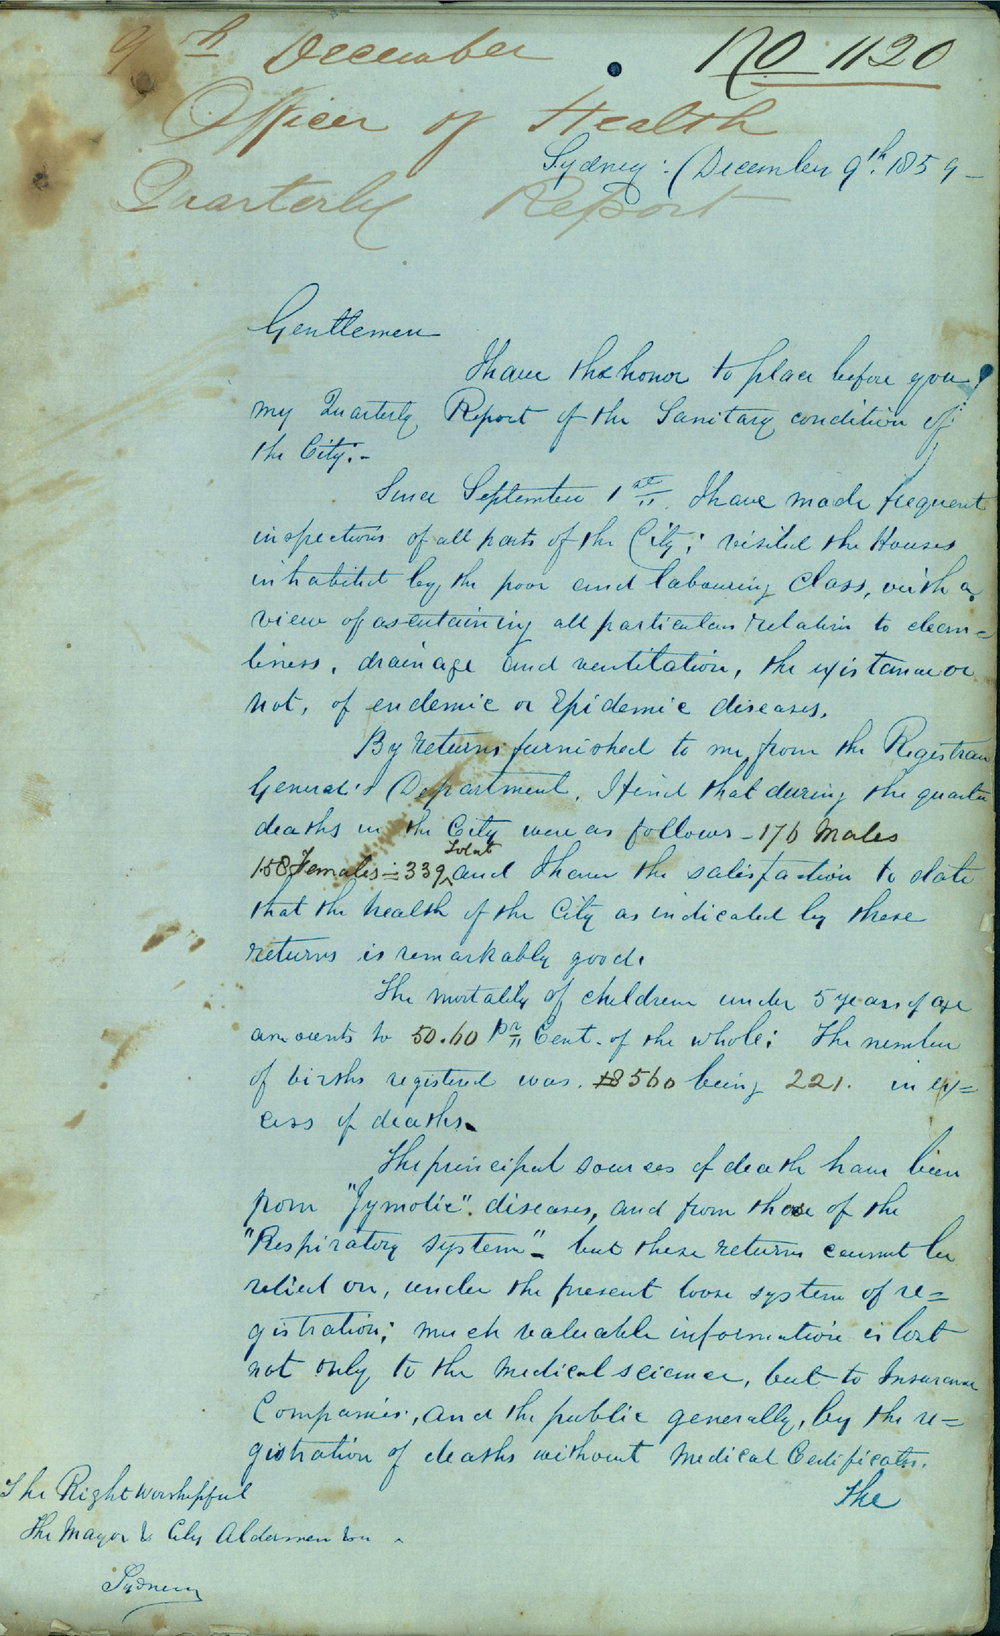 9th December
No 1120
Officer of Health
Sydney: December 9th. 1859 -
Quarterly Report
Gentlemen
I have the honor to place before you,
my Quarterly Report of the Sanitary condition of
the City:-
Since September 1st. I have made frequent
inspections of all parts of the City; visited the Houses
inhabited by the poor and labouring Class, with a
view of ascertaining all particulars relative to clean=
liness, drainage and ventilation, the existance or
not, of endemic or Epidemic diseases.
By returns furnished to me from the Registrar
General's Department, I find that during the quarter
deaths in the City were as follows - 176 Males
Total
158 Females = 339 and I have the satisfaction to state
that the health of the City as indicated by these
returns is remarkably good.
The mortality of children under 5 years of age
amounts to 50.60 Pr Cent. of the whole; The number
of births registered was. 560 being 221. in ex=
cess of deaths.
The principal sources of death have been
from "Zymotic". diseases, and from those of the
"Respiratory system"- but these returns cannot be
relied on, under the present loose system of re=
gistration; much valuable information is lost
not only to the medical science, but to Insurance
Companies, and the public generally, by the re=
gistration of deaths without Medical Certificates.
The
The Right Worshipful
The Mayor & City Aldermen
Sydney